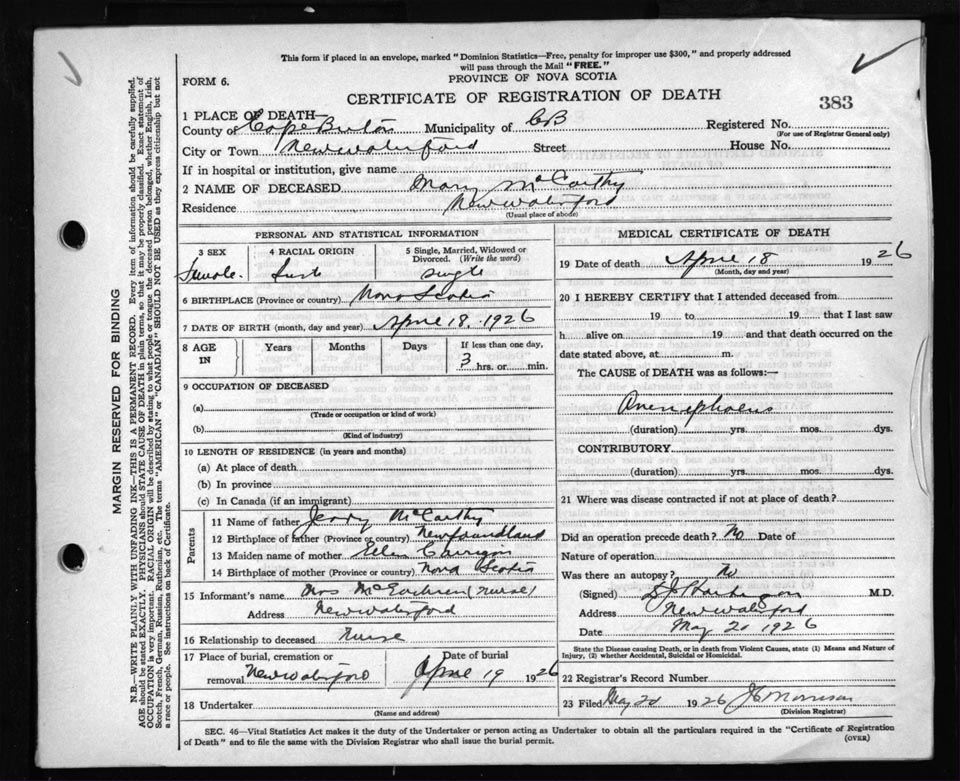 This form if placed in an envelope, marked "Dominion Statistics—Free, penalty for improper use $300," and properly addressed
will pass through the Mail "FREE."
FORM 6.
PROVINCE OF NOVA SCOTIA
CERTIFICATE OF REGISTRATION OF DEATH
383
1 PLACE OF DEATH—
County of Cape Breton Municipality of CB Registered No.
(For use of Registrar General only)
City or Town New Waterford Street House No.
If in hospital or institution, give name
2 NAME OF DECEASED Mary McCarthy
Residence New Waterford
(Usual place of abode)
PERSONAL AND STATISTICAL INFORMATION
3 SEX 4 RACIAL ORIGIN 5 Single, Married, Widowed or Divorced. (Write the word)
Female Irish Single
6 BIRTHPLACE (Province or country) Nova Scotia
7 DATE OF BIRTH (month, day and year) April 18, 1926
8 AGE IN Years Months Days If less than one day, 3 hrs. or min.
9 OCCUPATION OF DECEASED
(a)
(Trade or occupation or kind of work)
(b)
(Kind of industry)
10 LENGTH OF RESIDENCE (in years and months)
(a) At place of death
(b) In province
(c) In Canada (if an immigrant)
Parents
11 Name of father Jerry McCarthy
12 Birthplace of father (Province or country) Newfoundland
13 Maiden name of mother Ellen
14 Birthplace of mother (Province or country) Nova Scotia
15 Informant's name Mrs McEachren (Nurse)
Address New Waterford
16 Relationship to deceased Nurse
17 Place of burial, cremation or removal New Waterford Date of burial April 19 1926
18 Undertaker
(Name and address)
MEDICAL CERTIFICATE OF DEATH
19 Date of death April 18 1926
(Month, day and year)
20 I HEREBY CERTIFY that I attended deceased from
19 to 19 that I last saw
h alive on 19 and that death occurred on the
date stated above, at m.
The CAUSE of DEATH was as follows:—
Anencephalus
(duration) yrs. mos. dys.
CONTRIBUTORY
(duration) yrs. mos. dys.
21 Where was disease contracted if not at place of death?
Did an operation precede death? No Date of
Nature of operation
Was there an autopsy? No
(Signed) M.D.
Address New Waterford
Date May 20 1926
State the Disease causing Death, or in death from Violent Causes, state (1) Means and Nature of
Injury, (2) whether Accidental, Suicidal or Homicidal.
22 Registrar's Record Number
23 Filed May 20 1926 Morrison
(Division Registrar)
SEC. 46—Vital Statistics Act makes it the duty of the Undertaker or person acting as Undertaker to obtain all the particulars required in the "Certificate of Registration
of Death" and to file the same with the Division Registrar who shall issue the burial permit.
(OVER)
MARGIN RESERVED FOR BINDING
N.B.—WRITE PLAINLY WITH UNFADING INK—THIS IS A PERMANENT RECORD. Every item of information should be carefully supplied.
AGE should be stated EXACTLY. PHYSICIANS should STATE CAUSE OF DEATH in plain terms, so that it may be properly classified. Exact statement of
OCCUPATION is very important. RACIAL ORIGIN will be described by stating to what people or tongue the deceased person belonged, whether English, Irish,
Scotch, French, German, Russian, Ruthenian, etc. The terms "AMERICAN" or "CANADIAN" SHOULD NOT BE USED as they express citizenship but not
a race or people. See instructions on back of Certificate.